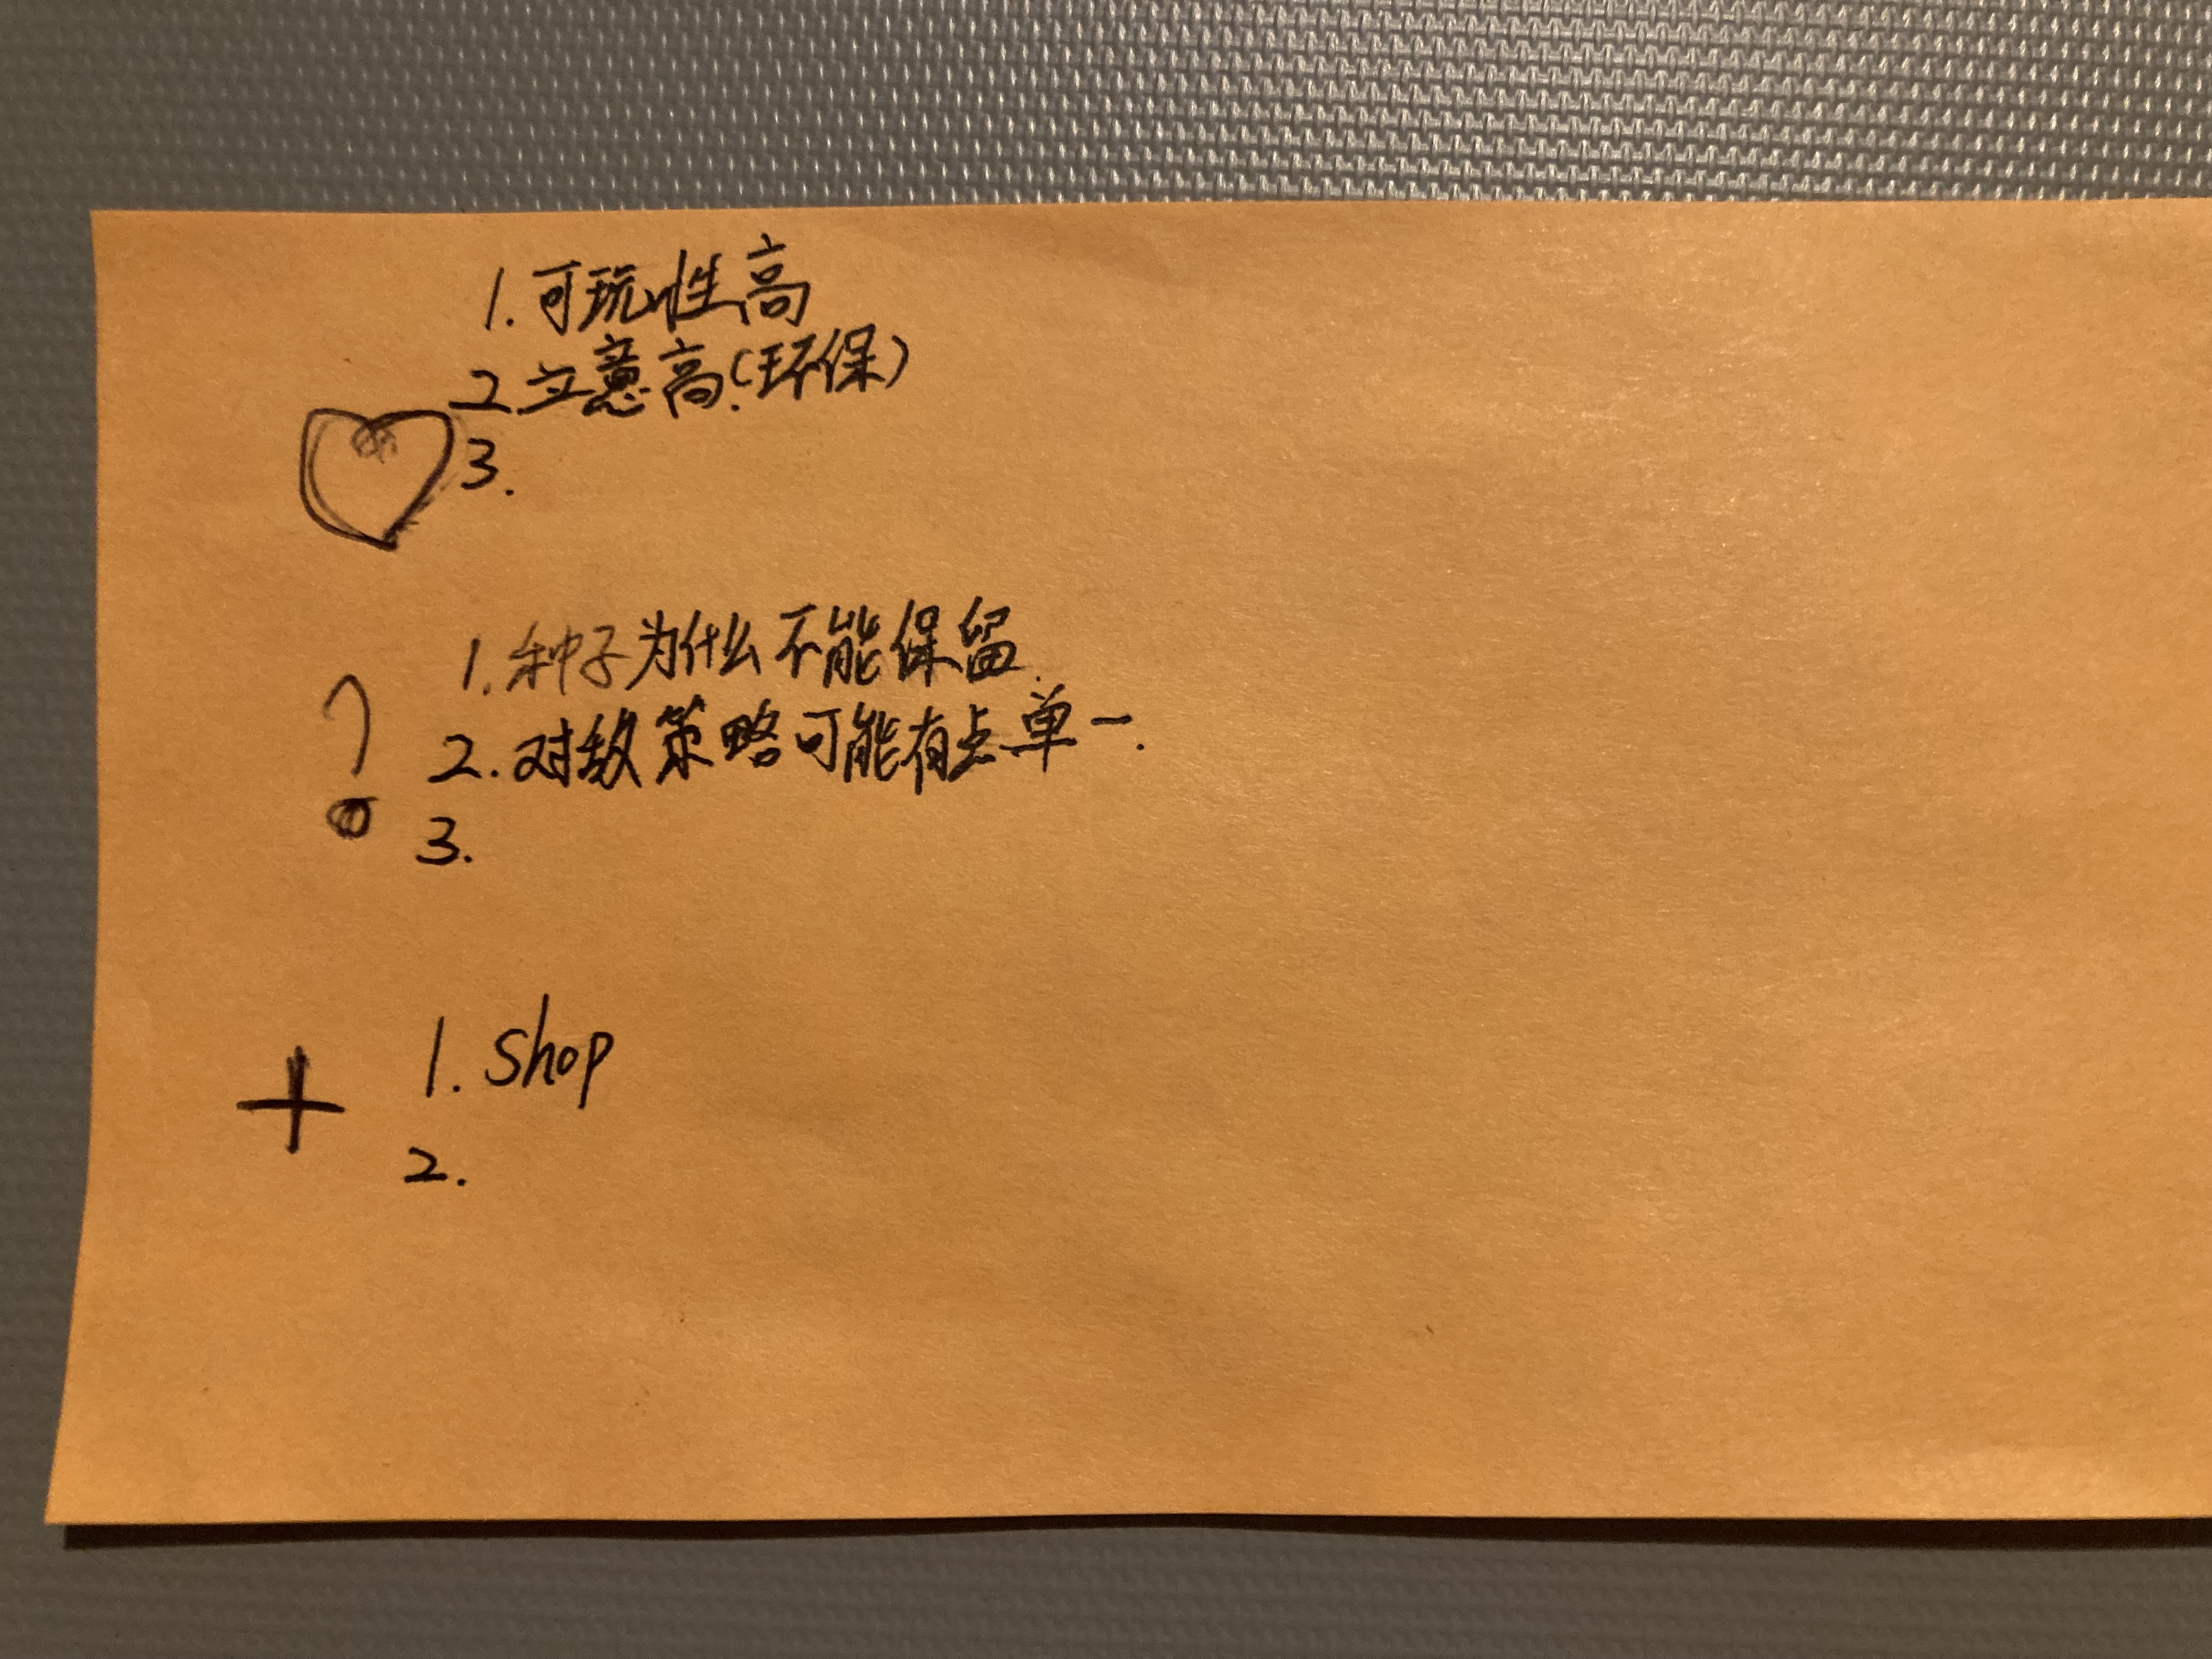 1. 可玩性高
2. 立意高.(环保)
3.
1. 种子为什么不能保留.
?
2. 对敌策略可能有点单一.
3.
1. Shop
+
2.